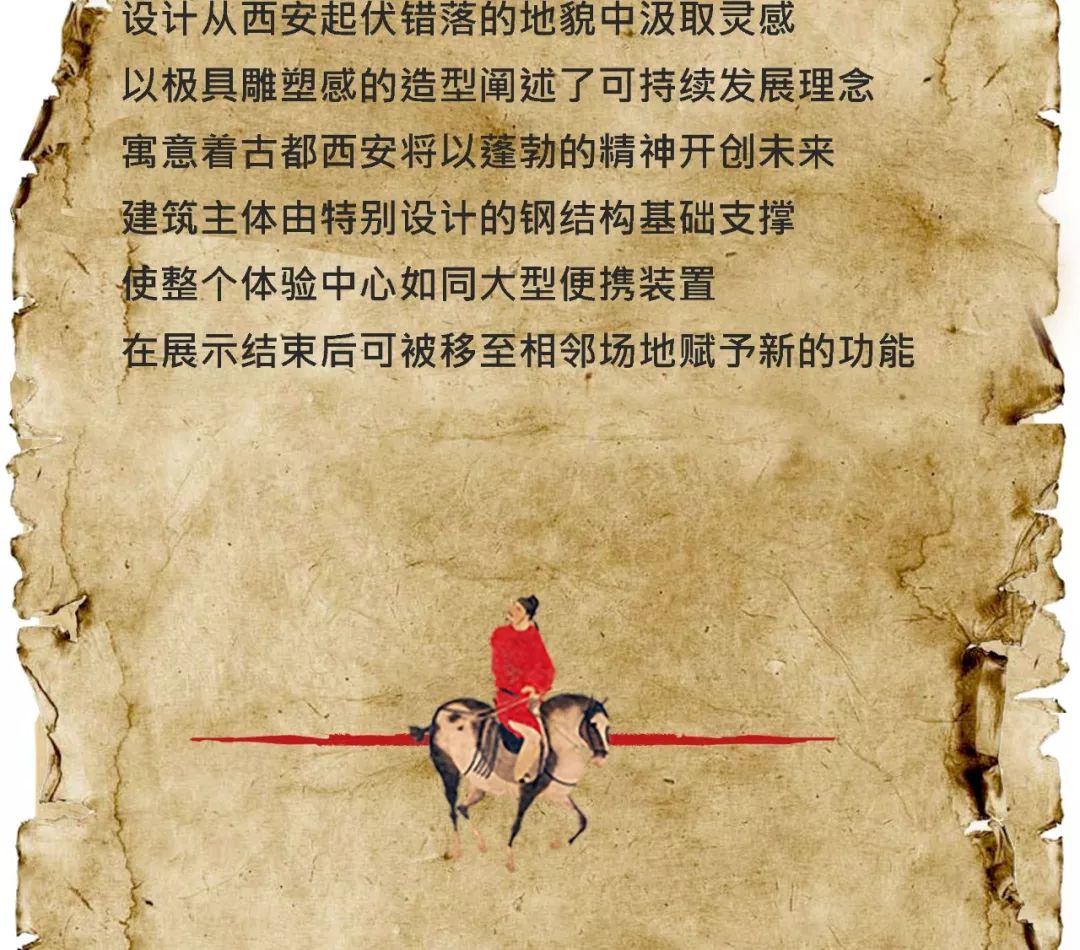 设计从西安起伏错落的地貌中汲取灵感
以极具雕塑感的造型阐述了可持续发展理念
寓意着古都西安将以蓬勃的精神开创未来
建筑主体由特别设计的钢结构基础支撑
使整个体验中心如同大型便携装置
在展示结束后可被移至相邻场地赋予新的功能